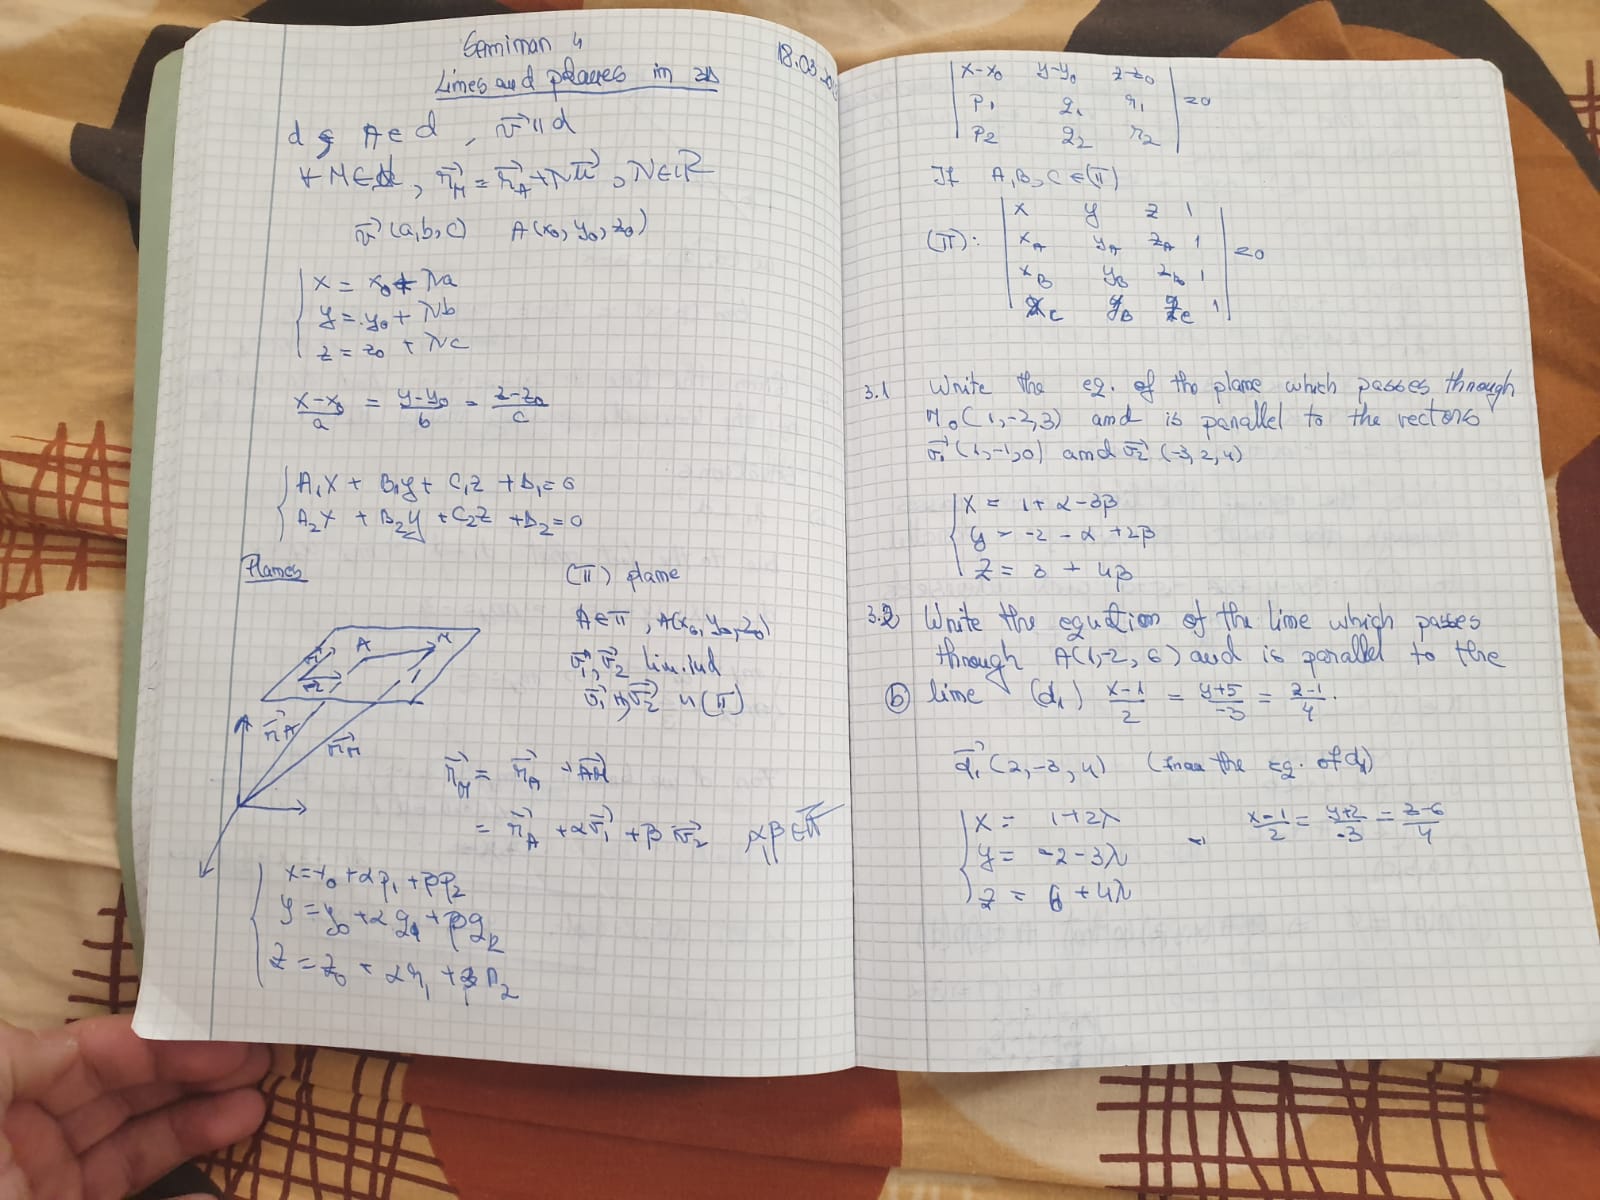 Seminar 4
Lines and planes in 3D
18.03.
d ∋ A∈d , v⃗ ∥ d
∀ M∈d , r⃗_M = r⃗_A + λv⃗ , λ∈ℝ
v⃗ (a,b,c) A(x₀, y₀, z₀)
x = x₀ + λa
y = y₀ + λb
z = z₀ + λc
(x-x₀)/a = (y-y₀)/b = (z-z₀)/c
A₁x + B₁y + C₁z + D₁ = 0
A₂x + B₂y + C₂z + D₂ = 0
Planes
(π) plane
A∈π , A(x₀, y₀, z₀)
v⃗₁, v⃗₂ lin. ind
v⃗₁, v⃗₂ ∥ (π)
A M
r⃗_A
r⃗_M
r⃗_M = r⃗_A + AM⃗
= r⃗_A + αv⃗₁ + βv⃗₂ α,β∈ℝ
x = x₀ + αp₁ + βp₂
y = y₀ + αq₁ + βq₂
z = z₀ + αr₁ + βr₂
| x-x₀ y-y₀ z-z₀ |
| p₁ q₁ r₁ | = 0
| p₂ q₂ r₂ |
If A, B, C ∈ (π)
| x y z 1 |
(π): | x_A y_A z_A 1 | = 0
| x_B y_B z_B 1 |
| x_C y_B z_C 1 |
3.1 Write the eq. of the plane which passes through
M₀(1,-2,3) and is parallel to the vectors
v⃗₁(1,-1,0) and v⃗₂(-3,2,4)
x = 1 + α - 3β
y = -2 - α + 2β
z = 3 + 4β
3.2 Write the equation of the line which passes
through A(1,-2,6) and is parallel to the
ⓑ line (d₁) (x-1)/2 = (y+5)/-3 = (z-1)/4.
d⃗₁(2,-3,4) (from the eq. of d₁)
x = 1+2λ
y = -2-3λ
z = 6+4λ
(x-1)/2 = (y+2)/-3 = (z-6)/4